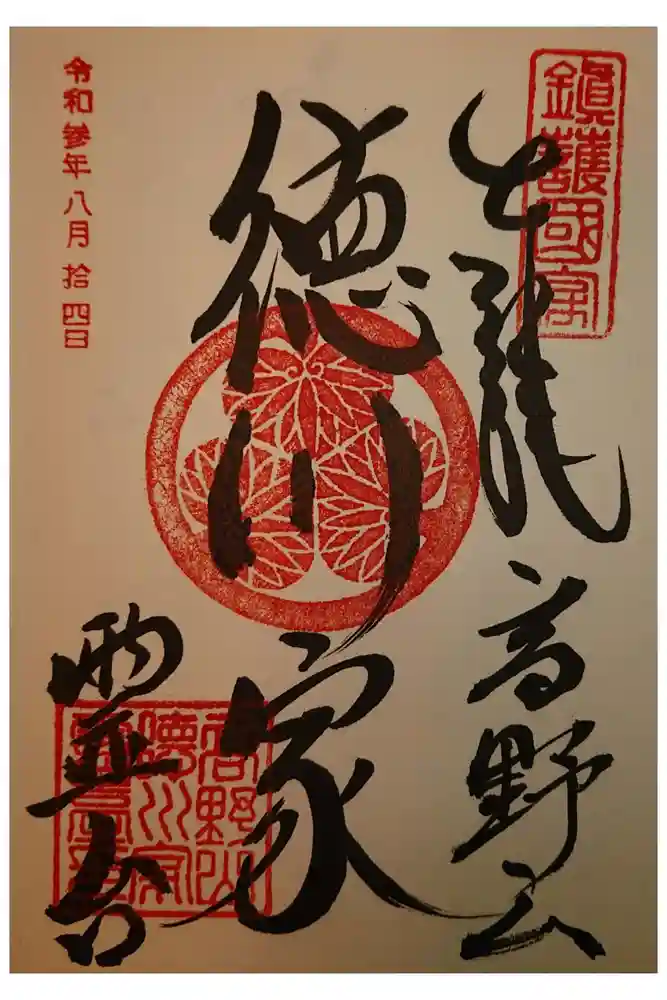 鎮護國家
高野山
徳川家
霊台
高野山
德川家
令和参年八月拾四日